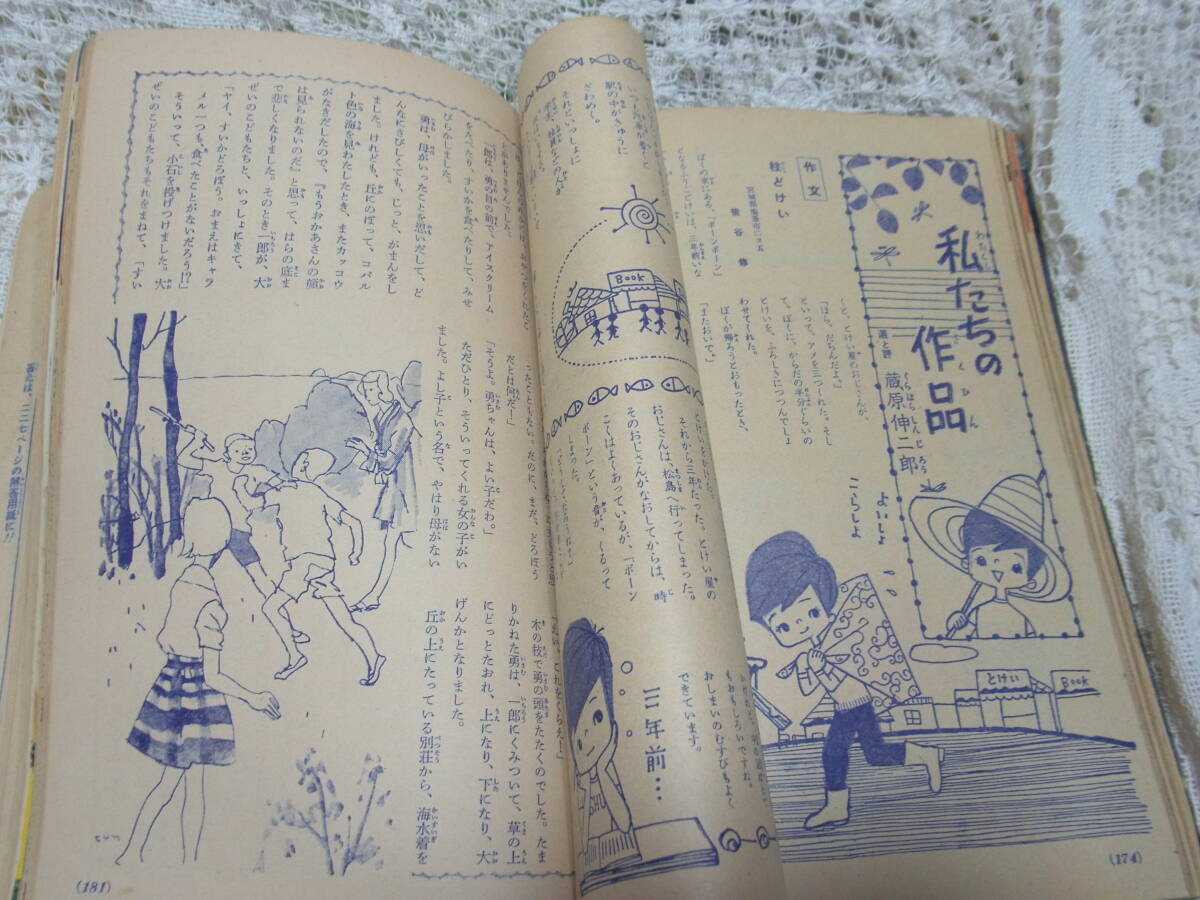 私たちの
作品
選と評
蔵原伸二郎
よいしょ
こらしょ
作文
柱どけい
ぼくの家にある、「ボーンボーン」
となるふりこどけいは、三年前いな
ーと、とけい屋のおじさんが、
「ほら、だちんだよ。」
といって、アメを三つくれた。そし
て、ぼくに、からだの半分ぐらいの
とけいを、ふろしきにつつんでしょ
わせてくれた。
ぼくが帰ろうとおもったとき、
「またおいで。」
とけい
Book
(174)
駅の中がきゅうに
ざわめく。
それといっしょに
Book
それから三年たった。とけい屋の
おじさんは、松島へ行ってしまった。
そのおじさんがなおしてからは、時
こくはよくあっているが、「ボーン
ボーン」という音が、くるって
しまった。
もおもしろいですね。
おしまいのむすびもよく
できています。
三年前…
一郎は、勇の目の前で、アイスクリーム
をたべたり、すいかを食べたりして、みせ
びらかしました。
勇は、母がいったことを思いだして、ど
んなにさびしくても、じっと、がまんをし
ました。けれども、丘にのぼって、コバル
ト色の海を見わたしたとき、またカッコウ
がなきだしたので、『もうおかあさんの顔
は見られないのだ』と思って、はらの底ま
で悲しくなりました。そのとき一郎が、大
ぜいのこどもたちと、いっしょにきて、
「ヤイ、すいかどろぼう。おまえはキャラ
メル一つも、食べたことがないだろう!!」
そういって、小石を投げつけました。大
ぜいのこどもたちもそれをまねて、「すい
ったこともない。だのに、まだ、どろぼう
だとは何だ!」
「そうよ。勇ちゃんは、よい子だわ。」
ただひとり、そういってくれる女の子がい
ました。よし子という名で、やはり母がない
木の枝で勇の頭をたたくのでした。たま
りかねた勇は、一郎にくみついて、草の上
にどっとたおれ、上になり、下になり、大
げんかとなりました。
丘の上にたっている別荘から、海水着を
(181)